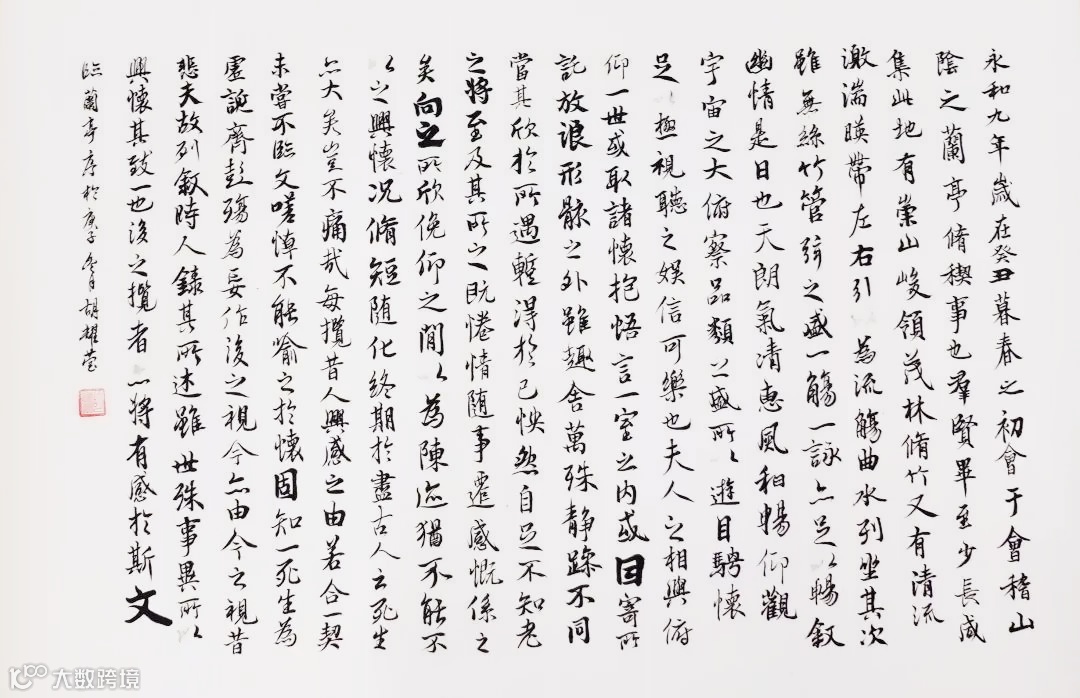 永和九年歲在癸丑暮春之初會于會稽山
陰之蘭亭脩稧事也羣賢畢至少長咸
集此地有崇山峻領茂林脩竹又有清流
激湍暎帶左右引以為流觴曲水列坐其次
雖無絲竹管弦之盛一觴一詠亦足以暢敘
幽情是日也天朗氣清惠風和暢仰觀
宇宙之大俯察品類之盛所以遊目騁懷
足以極視聽之娛信可樂也夫人之相與俯
仰一世或取諸懷抱悟言一室之內或因寄所
託放浪形骸之外雖趣舍萬殊静躁不同
當其欣於所遇蹔得於己怏然自足不知老
之將至及其所之既惓情随事遷感慨係之
矣向之所欣俛仰之閒以為陳迹猶不能不
以之興懷况脩短随化終期於盡古人云死生
亦大矣豈不痛哉每攬昔人興感之由若合一契
未嘗不臨文嗟悼不能喻之於懷固知一死生為
虛誕齊彭殤為妄作後之視今亦由今之視昔
悲夫故列敘時人錄其所述雖世殊事異所以
興懷其致一也後之攬者亦將有感於斯文
臨蘭亭序於庚子冬月胡耀莹
大数跨境